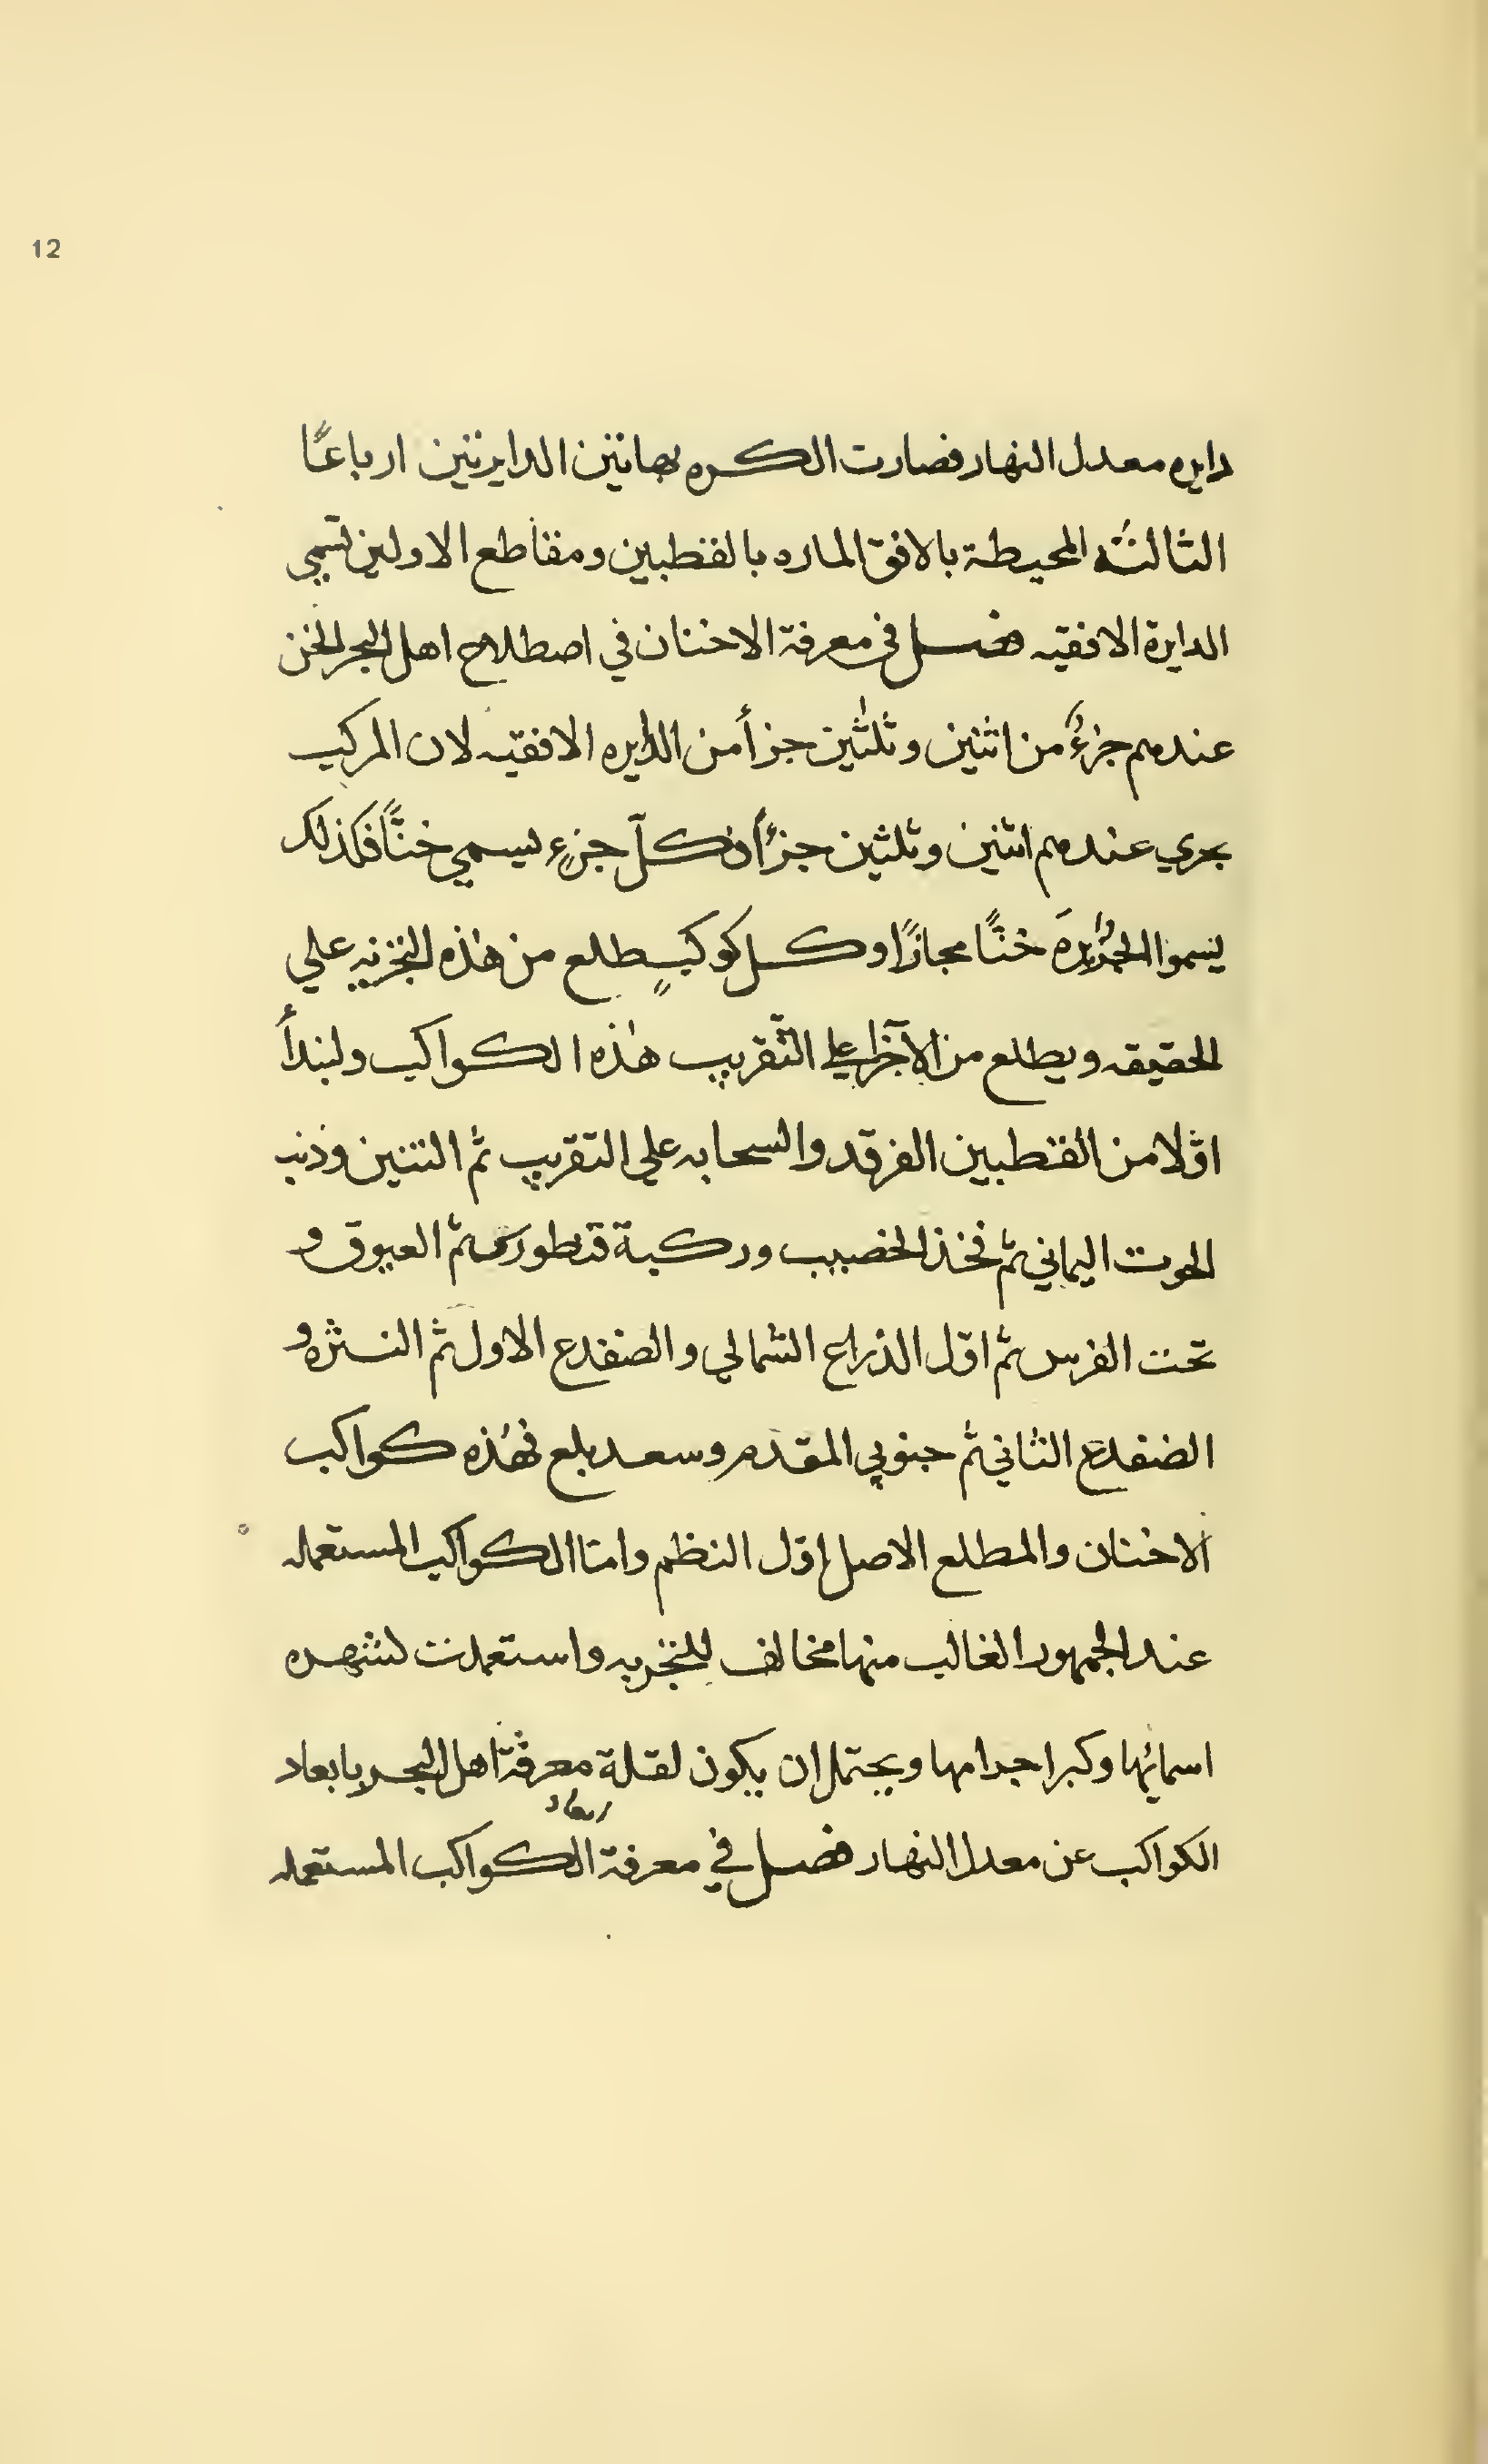 12
دايره معدل النهار فصارت الكره بهاتين الدايرتين ارباعًا
الثالثه المحيطة بالافق الماره بالقطبين ومقاطع الاولين تسمي
الدايرة الافقيه فصل في معرفة الاخنان في اصطلاح اهل البحر الخن
عندهم جزءٌ من اثنين وثلثين جزأ من الدايره الافقيه لان المركب
يجري عندهم اثنين وثلثين جزأ وكلّ جزءٍ يسمي خنًّا فكذلك
يسموا خنًّا مجازًا وكل كوكبٍ طلع من هذه التجزيه علي
الحقيقه ويطلع من الآخر علي التقريب هذه الكواكب ولنبدأ
اوّلا من القطبين الفرقد والسحابه علي التقريب ثم التنين وذنب
الحوت اليماني ثم فخذ الخضيب وركبة قنطورس ثم العيوق و
تحت الفرس ثم اوّل الذراع الشمالي والضفدع الاول ثم النثره و
الضفدع الثاني ثم جنوبي المقدم وسعد بلع فهذه كواكب
الاخنان والمطلع الاصل اوّل النظم وامّا الكواكب المستعمله
عند الجمهور الغالب منها مخالف للتجزيه واستعملت لشهره
اسمائها وكبر اجرامها ويحتمل ان يكون لقلة معرفة اهل البحر بابعاد
ابعاد
الكواكب عن معدل النهار فصل في معرفة الكواكب المستعمله